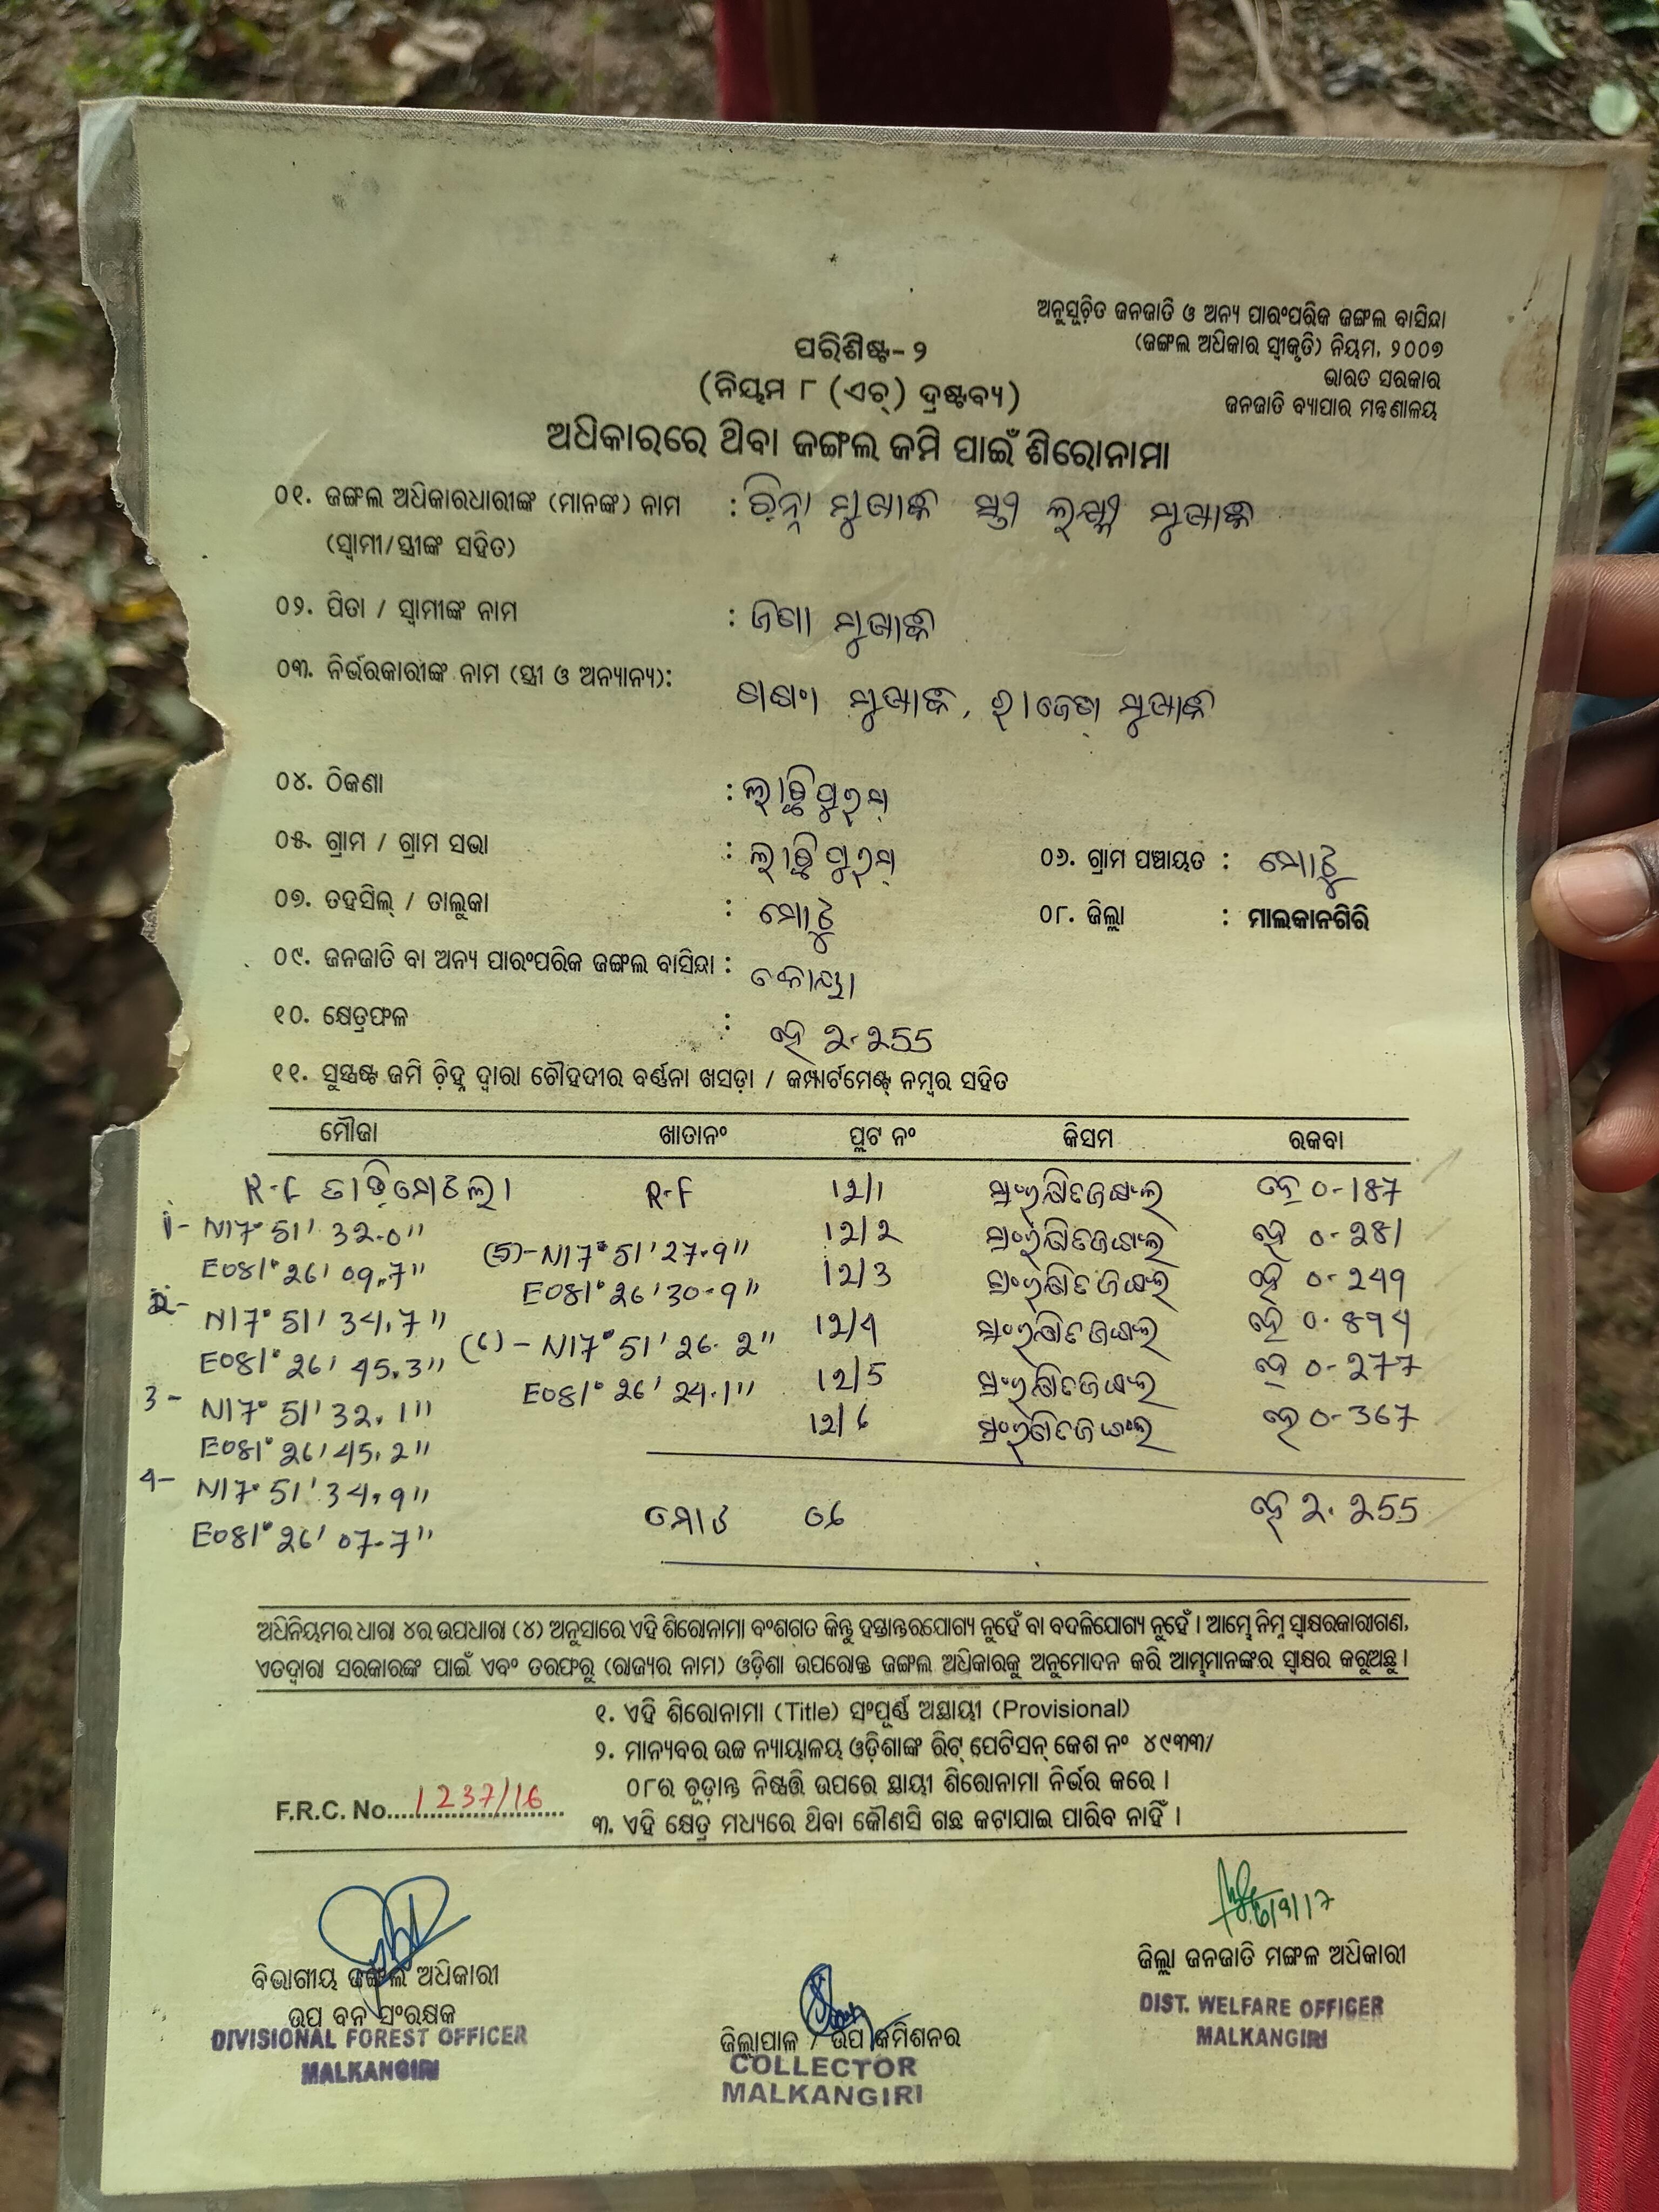 ଅନୁସୂଚିତ ଜନଜାତି ଓ ଅନ୍ୟ ପାରଂପରିକ ଜଙ୍ଗଲ ବାସିନ୍ଦା
(ଜଙ୍ଗଲ ଅଧିକାର ସ୍ୱୀକୃତି) ନିୟମ, ୨୦୦୭
ଭାରତ ସରକାର
ଜନଜାତି ବ୍ୟାପାର ମନ୍ତ୍ରଣାଳୟ
ପରିଶିଷ୍ଟ-୨
(ନିୟମ ୮ (ଏଚ୍) ଦ୍ରଷ୍ଟବ୍ୟ)
ଅଧିକାରରେ ଥିବା ଜଙ୍ଗଲ ଜମି ପାଇଁ ଶିରୋନାମା
୦୧. ଜଙ୍ଗଲ ଅଧିକାରଧାରୀଙ୍କ (ମାନଙ୍କ) ନାମ :
(ସ୍ୱାମୀ/ସ୍ତ୍ରୀଙ୍କ ସହିତ)
୦୨. ପିତା / ସ୍ୱାମୀଙ୍କ ନାମ :
୦୩. ନିର୍ଭରକାରୀଙ୍କ ନାମ (ସ୍ତ୍ରୀ ଓ ଅନ୍ୟାନ୍ୟ):
୦୪. ଠିକଣା :
୦୫. ଗ୍ରାମ / ଗ୍ରାମ ସଭା : ୦୬. ଗ୍ରାମ ପଞ୍ଚାୟତ : ମୋଟୁ
୦୭. ତହସିଲ୍ / ତାଲୁକା : ମୋଟୁ ୦୮. ଜିଲ୍ଲା : ମାଲକାନଗିରି
୦୯. ଜନଜାତି ବା ଅନ୍ୟ ପାରଂପରିକ ଜଙ୍ଗଲ ବାସିନ୍ଦା : କୋୟା
୧୦. କ୍ଷେତ୍ରଫଳ : ହେ 2.255
୧୧. ସୁସ୍ପଷ୍ଟ ଜମି ଚିହ୍ନ ଦ୍ୱାରା ଚୌହଦୀର ବର୍ଣ୍ଣନା ଖସଡ଼ା / କମ୍ପାର୍ଟମେଣ୍ଟ୍ ନମ୍ବର ସହିତ
ମୌଜା ଖାତାନଂ ପ୍ଲଟ ନଂ କିସମ ରକବା
R.F R.F 12/1 ସଂରକ୍ଷିତ ଜଙ୍ଗଲ ହେ 0-187
1- N17° 51' 32.0" 12/2 ସଂରକ୍ଷିତ ଜଙ୍ଗଲ ହେ 0-281
E081° 26' 09.7" (5)- N17° 51' 27.9" 12/3 ସଂରକ୍ଷିତ ଜଙ୍ଗଲ ହେ 0-249
2- N17° 51' 34.7" E081° 26' 30.9" 12/4 ସଂରକ୍ଷିତ ଜଙ୍ଗଲ ହେ 0.894
E081° 26' 45.3" (6)- N17° 51' 26.2" 12/5 ସଂରକ୍ଷିତ ଜଙ୍ଗଲ ହେ 0-277
3- N17° 51' 32.1" E081° 26' 24.1" 12/6 ସଂରକ୍ଷିତ ଜଙ୍ଗଲ ହେ 0-367
E081° 26' 45.2"
4- N17° 51' 34.9" ମୋଟ 06 ହେ 2.255
E081° 26' 07.7"
ଅଧିନିୟମର ଧାରା ୪ର ଉପଧାରା (୪) ଅନୁସାରେ ଏହି ଶିରୋନାମା ବଂଶଗତ କିନ୍ତୁ ହସ୍ତାନ୍ତରଯୋଗ୍ୟ ନୁହେଁ ବା ବଦଳିଯୋଗ୍ୟ ନୁହେଁ । ଆମ୍ଭେ ନିମ୍ନ ସ୍ୱାକ୍ଷରକାରୀଗଣ,
ଏତଦ୍ୱାରା ସରକାରଙ୍କ ପାଇଁ ଏବଂ ତରଫରୁ (ରାଜ୍ୟର ନାମ) ଓଡ଼ିଶା ଉପରୋକ୍ତ ଜଙ୍ଗଲ ଅଧିକାରକୁ ଅନୁମୋଦନ କରି ଆମ୍ଭମାନଙ୍କର ସ୍ୱାକ୍ଷର କରୁଅଛୁ ।
୧. ଏହି ଶିରୋନାମା (Title) ସଂପୂର୍ଣ୍ଣ ଅସ୍ଥାୟୀ (Provisional)
୨. ମାନ୍ୟବର ଉଚ୍ଚ ନ୍ୟାୟାଳୟ ଓଡ଼ିଶାଙ୍କ ରିଟ୍ ପେଟିସନ୍ କେଶ ନଂ ୪୯୩୩/
୦୮ର ଚୂଡ଼ାନ୍ତ ନିଷ୍ପତ୍ତି ଉପରେ ସ୍ଥାୟୀ ଶିରୋନାମା ନିର୍ଭର କରେ ।
F.R.C. No....1237/16
୩. ଏହି କ୍ଷେତ୍ର ମଧ୍ୟରେ ଥିବା କୌଣସି ଗଛ କଟାଯାଇ ପାରିବ ନାହିଁ ।
ବିଭାଗୀୟ ଜଙ୍ଗଲ ଅଧିକାରୀ
ଉପ ବନ ସଂରକ୍ଷକ
DIVISIONAL FOREST OFFICER
MALKANGIRI
ଜିଲ୍ଲାପାଳ / ଉପ କମିଶନର
COLLECTOR
MALKANGIRI
ଜିଲ୍ଲା ଜନଜାତି ମଙ୍ଗଳ ଅଧିକାରୀ
DIST. WELFARE OFFICER
MALKANGIRI